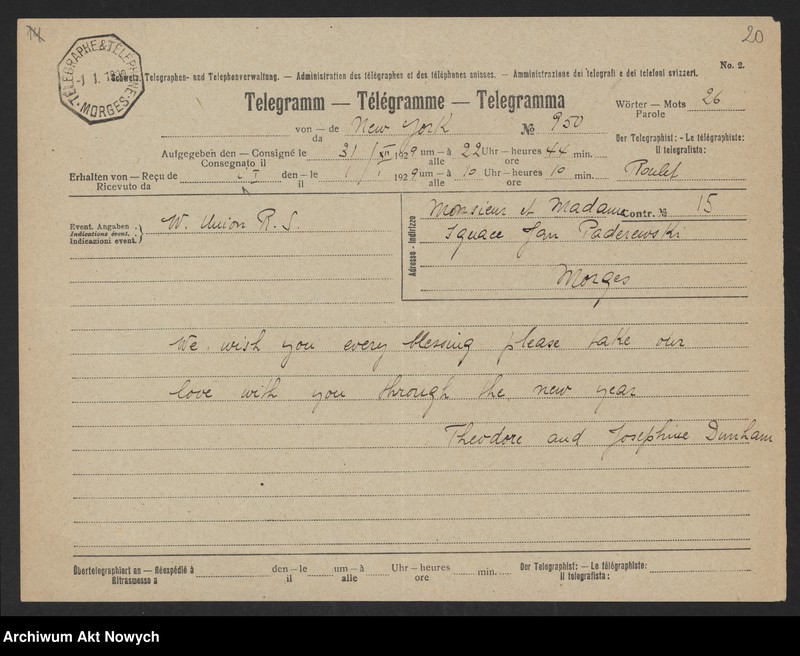 20
TELEGRAPHE & TELEPHONE
-1 1. 19
MORGES
No. 2.
Schweiz. Telegraphen- und Telephonverwaltung. — Administration des télégraphes et des téléphones suisses. — Amministrazione dei telegrafi e dei telefoni svizzeri.
Telegramm — Télégramme — Telegramma
Wörter — Mots 26
Parole
von — de New York № 950
da
Der Telegraphist: - Le télégraphiste:
Il telegrafista:
Aufgegeben den — Consigné le 31/XII 1929 um — à 22 Uhr — heures 44 min.
Consegnato il alle ore
Poulet
Erhalten von — Reçu de den — le 1/I 1929 um — à 10 Uhr — heures 10 min.
Ricevuto da il alle ore
Event. Angaben
Indications évent.
Indicazioni event.
W. Union R. S.
Adresse - Indirizzo
Monsieur et Madame Contr. № 15
Ignace Jan Paderewski
Morges
We wish you every blessing please take our
love with you through the new year
Theodore and Josephine Dunham
Übertelegraphiert an — Réexpédié à den — le um — à Uhr — heures min. Der Telegraphist: — Le télégraphiste:
Ritrasmesso a il alle ore Il telegrafista:
Archiwum Akt Nowych